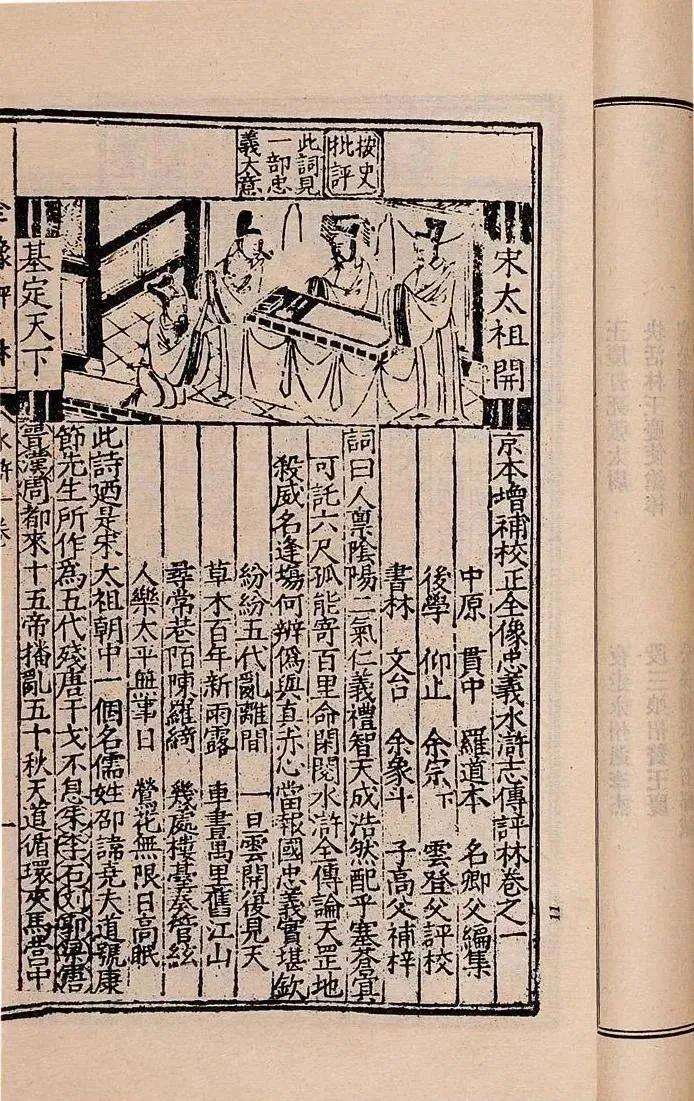 按史
批評
此詞見
一部忠
義大意
宋太祖開
基定天下
京本增補校正全像忠義水滸志傳評林卷之一
中原 貫中 羅道本 名卿父編集
後學 仰止 余宗下 雲登父評校
書林 文台 余象斗 子高父補梓
詞曰人禀陰陽二氣仁義禮智天成浩然配乎塞蒼冥
可託六尺孤能寄百里命閑閱水滸全傳論天罡地
殺威名逢塲何辨僞與真赤心當報國忠義實堪欽
紛紛五代亂離間 一旦雲開復見天
草木百年新雨露 車書萬里舊江山
尋常巷陌陳羅綺 幾處樓臺奏管絃
人樂太平無事日 鶯花無限日高眠
此詩廼是宋太祖朝中一個名儒姓邵諱堯夫道號康
節先生所作爲五代殘唐干戈不息朱李石刘郭梁唐
晉漢周都來十五帝播亂五十秋天道循環夾馬營中
全像評林 水滸一卷 一
11